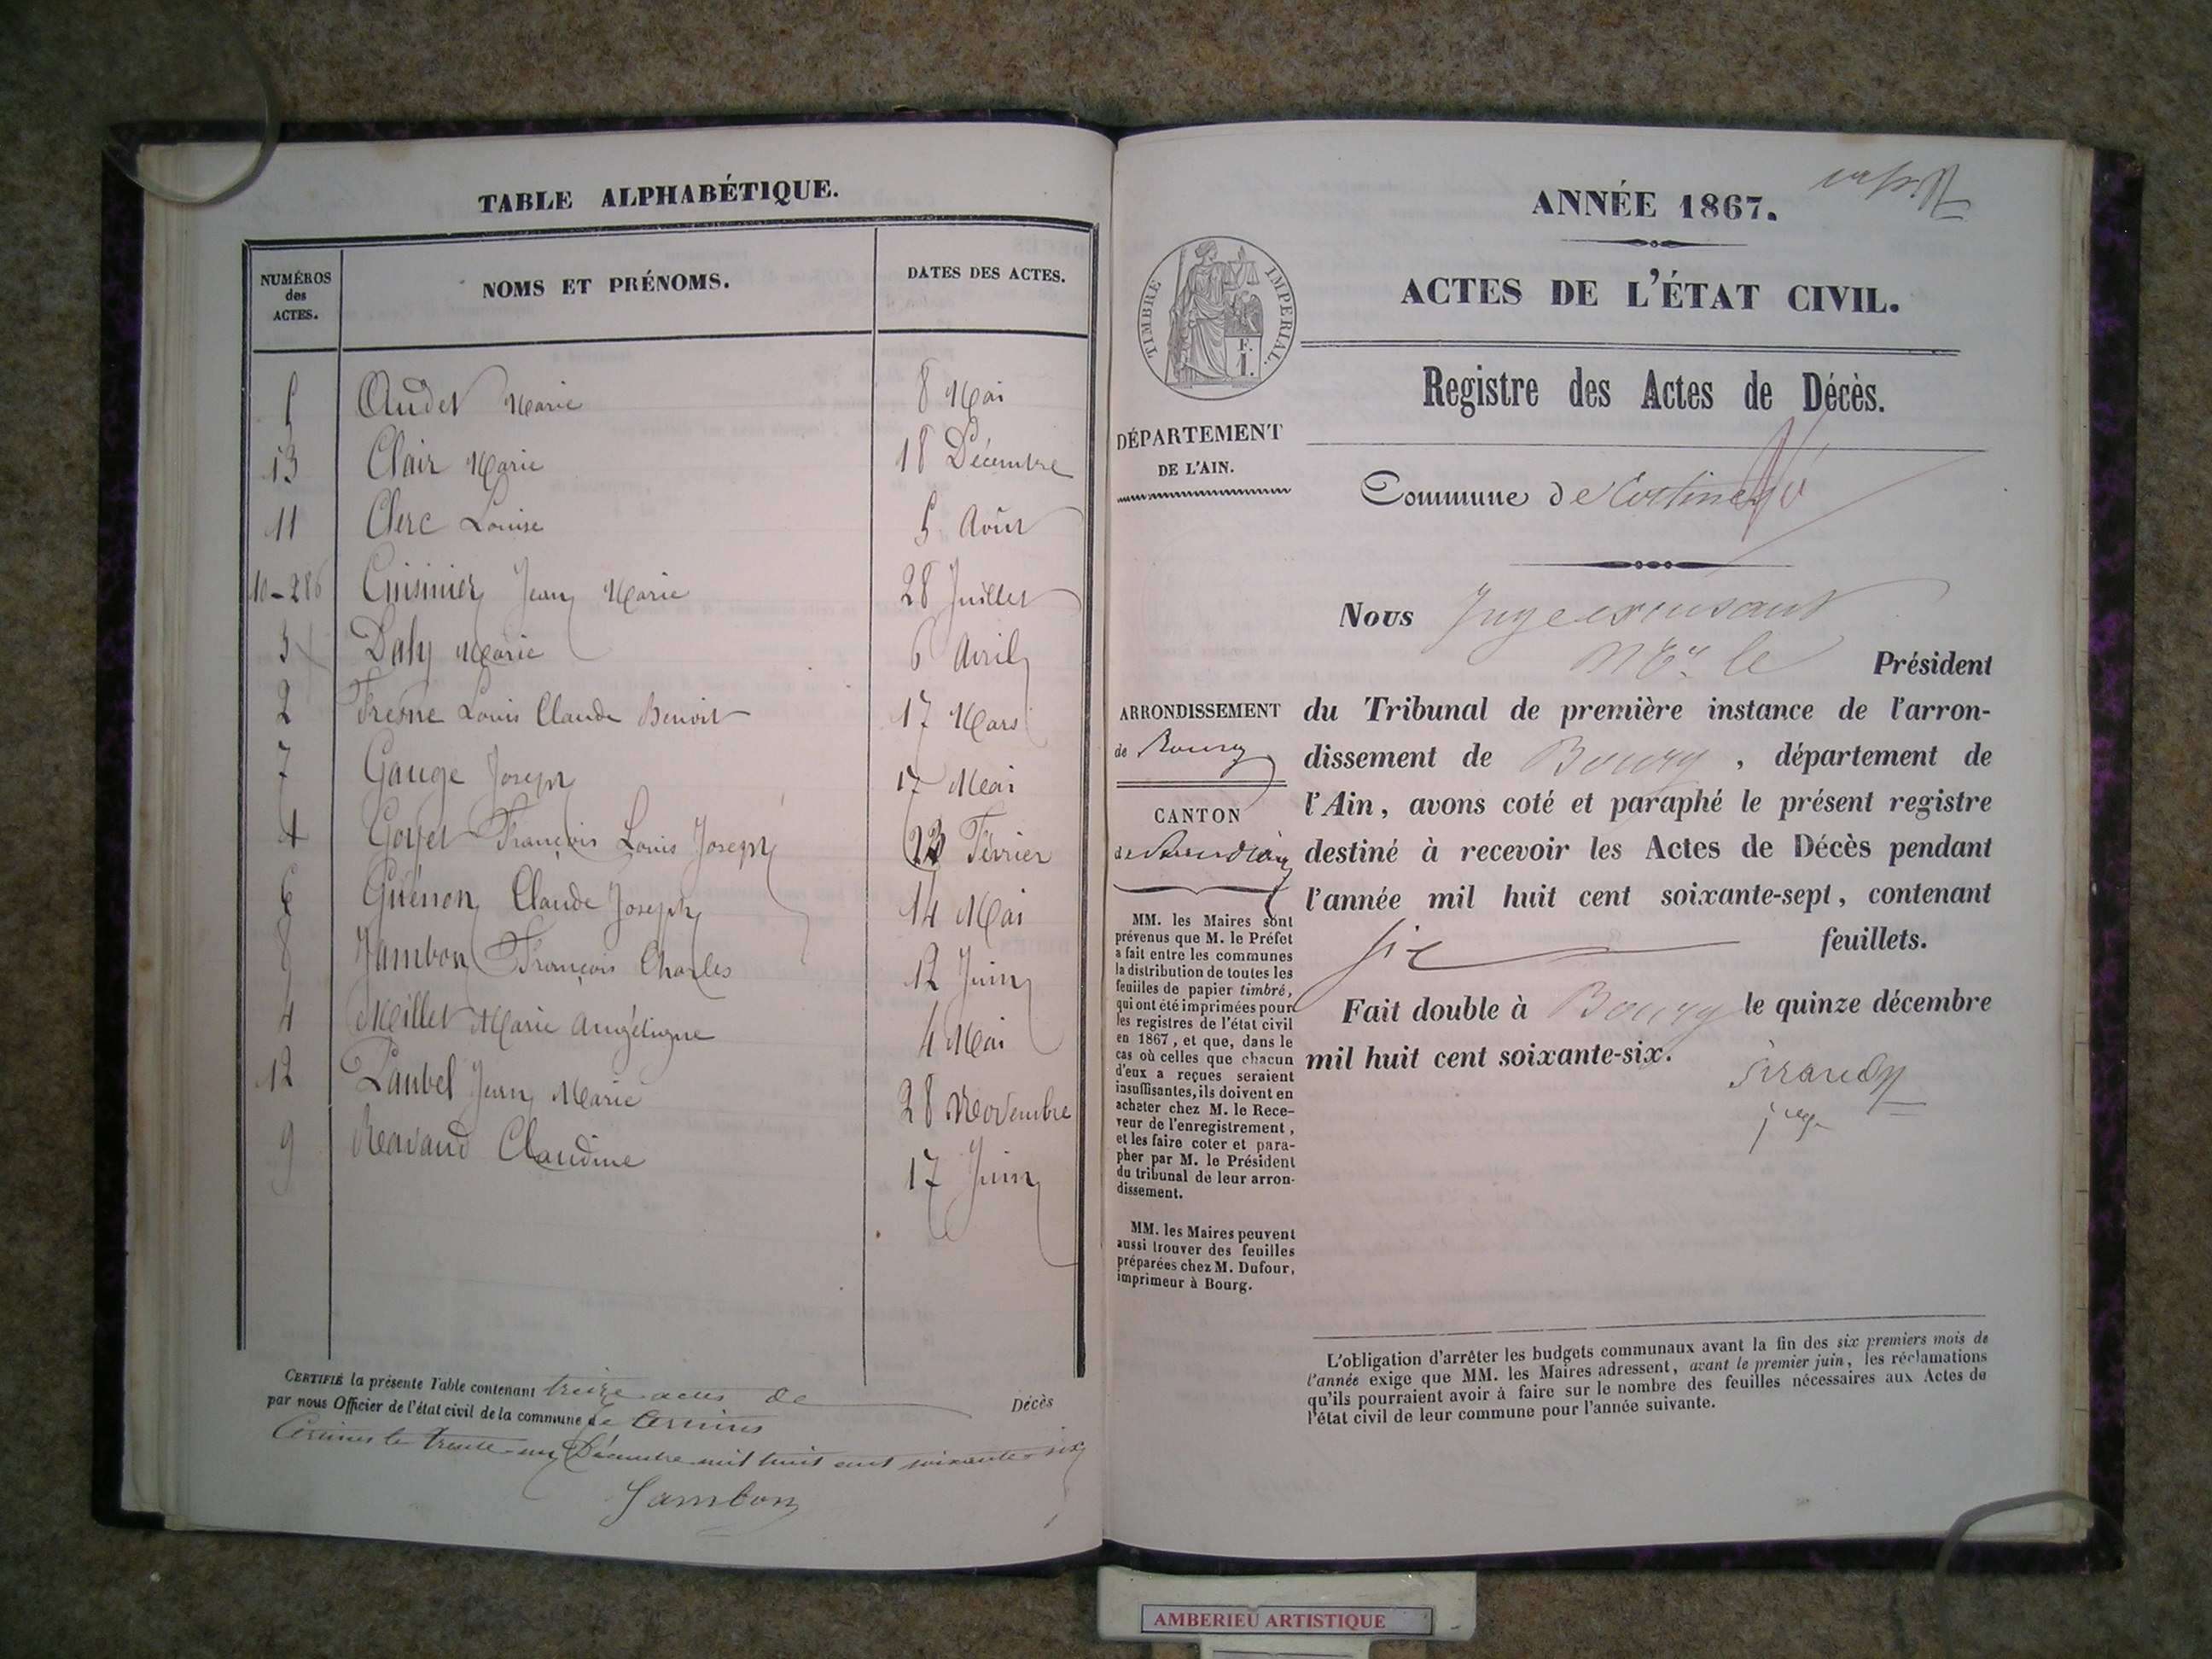 TABLE ALPHABÉTIQUE.
NUMÉROS des ACTES.
NOMS ET PRÉNOMS.
DATES DES ACTES.
5 Audet Marie 8 Mai
13 Clair Marie 18 Décembre
11 Clerc Louise 5 Août
10 - Cuisinier Jean Marie 28 Juillet
3 Daly Marie 6 Avril
2 Louis Claude Benoit 17 Mars
7 Gauge Joseph 17 Mai
Goyet François Louis Joseph Février
6 Guénon Claude Joseph 14 Mai
8 Jambon François Charles 12 Juin
4 Meillet Marie Angélique 4 Mai
12 Jean Marie 28 Novembre
9 Claudine 17 Juin
CERTIFIÉ la présente Table contenant treize actes de Décès
par nous Officier de l'état civil de la commune de
le trente-un Décembre mil huit cent soixante-six
Jambon
ANNÉE 1867.
ACTES DE L'ÉTAT CIVIL.
TIMBRE IMPERIAL.
F.
1.
Registre des Actes de Décès.
DÉPARTEMENT
DE L'AIN.
Commune de
Nous Juge
Mr le Président
ARRONDISSEMENT
de Bourg
CANTON
de
du Tribunal de première instance de l'arron-
dissement de Bourg, département de
l'Ain, avons coté et paraphé le présent registre
destiné à recevoir les Actes de Décès pendant
l'année mil huit cent soixante-sept, contenant
six feuillets.
Fait double à Bourg le quinze décembre
mil huit cent soixante-six.
MM. les Maires sont
prévenus que M. le Préfet
a fait entre les communes
la distribution de toutes les
feuilles de papier timbré,
qui ont été imprimées pour
les registres de l'état civil
en 1867, et que, dans le
cas où celles que chacun
d'eux a reçues seraient
insuffisantes, ils doivent en
acheter chez M. le Rece-
veur de l'enregistrement,
et les faire coter et para-
pher par M. le Président
du tribunal de leur arron-
dissement.
MM. les Maires peuvent
aussi trouver des feuilles
préparées chez M. Dufour,
imprimeur à Bourg.
L'obligation d'arrêter les budgets communaux avant la fin des six premiers mois de
l'année exige que MM. les Maires adressent, avant le premier juin, les réclamations
qu'ils pourraient avoir à faire sur le nombre des feuilles nécessaires aux Actes de
l'état civil de leur commune pour l'année suivante.
AMBERIEU ARTISTIQUE